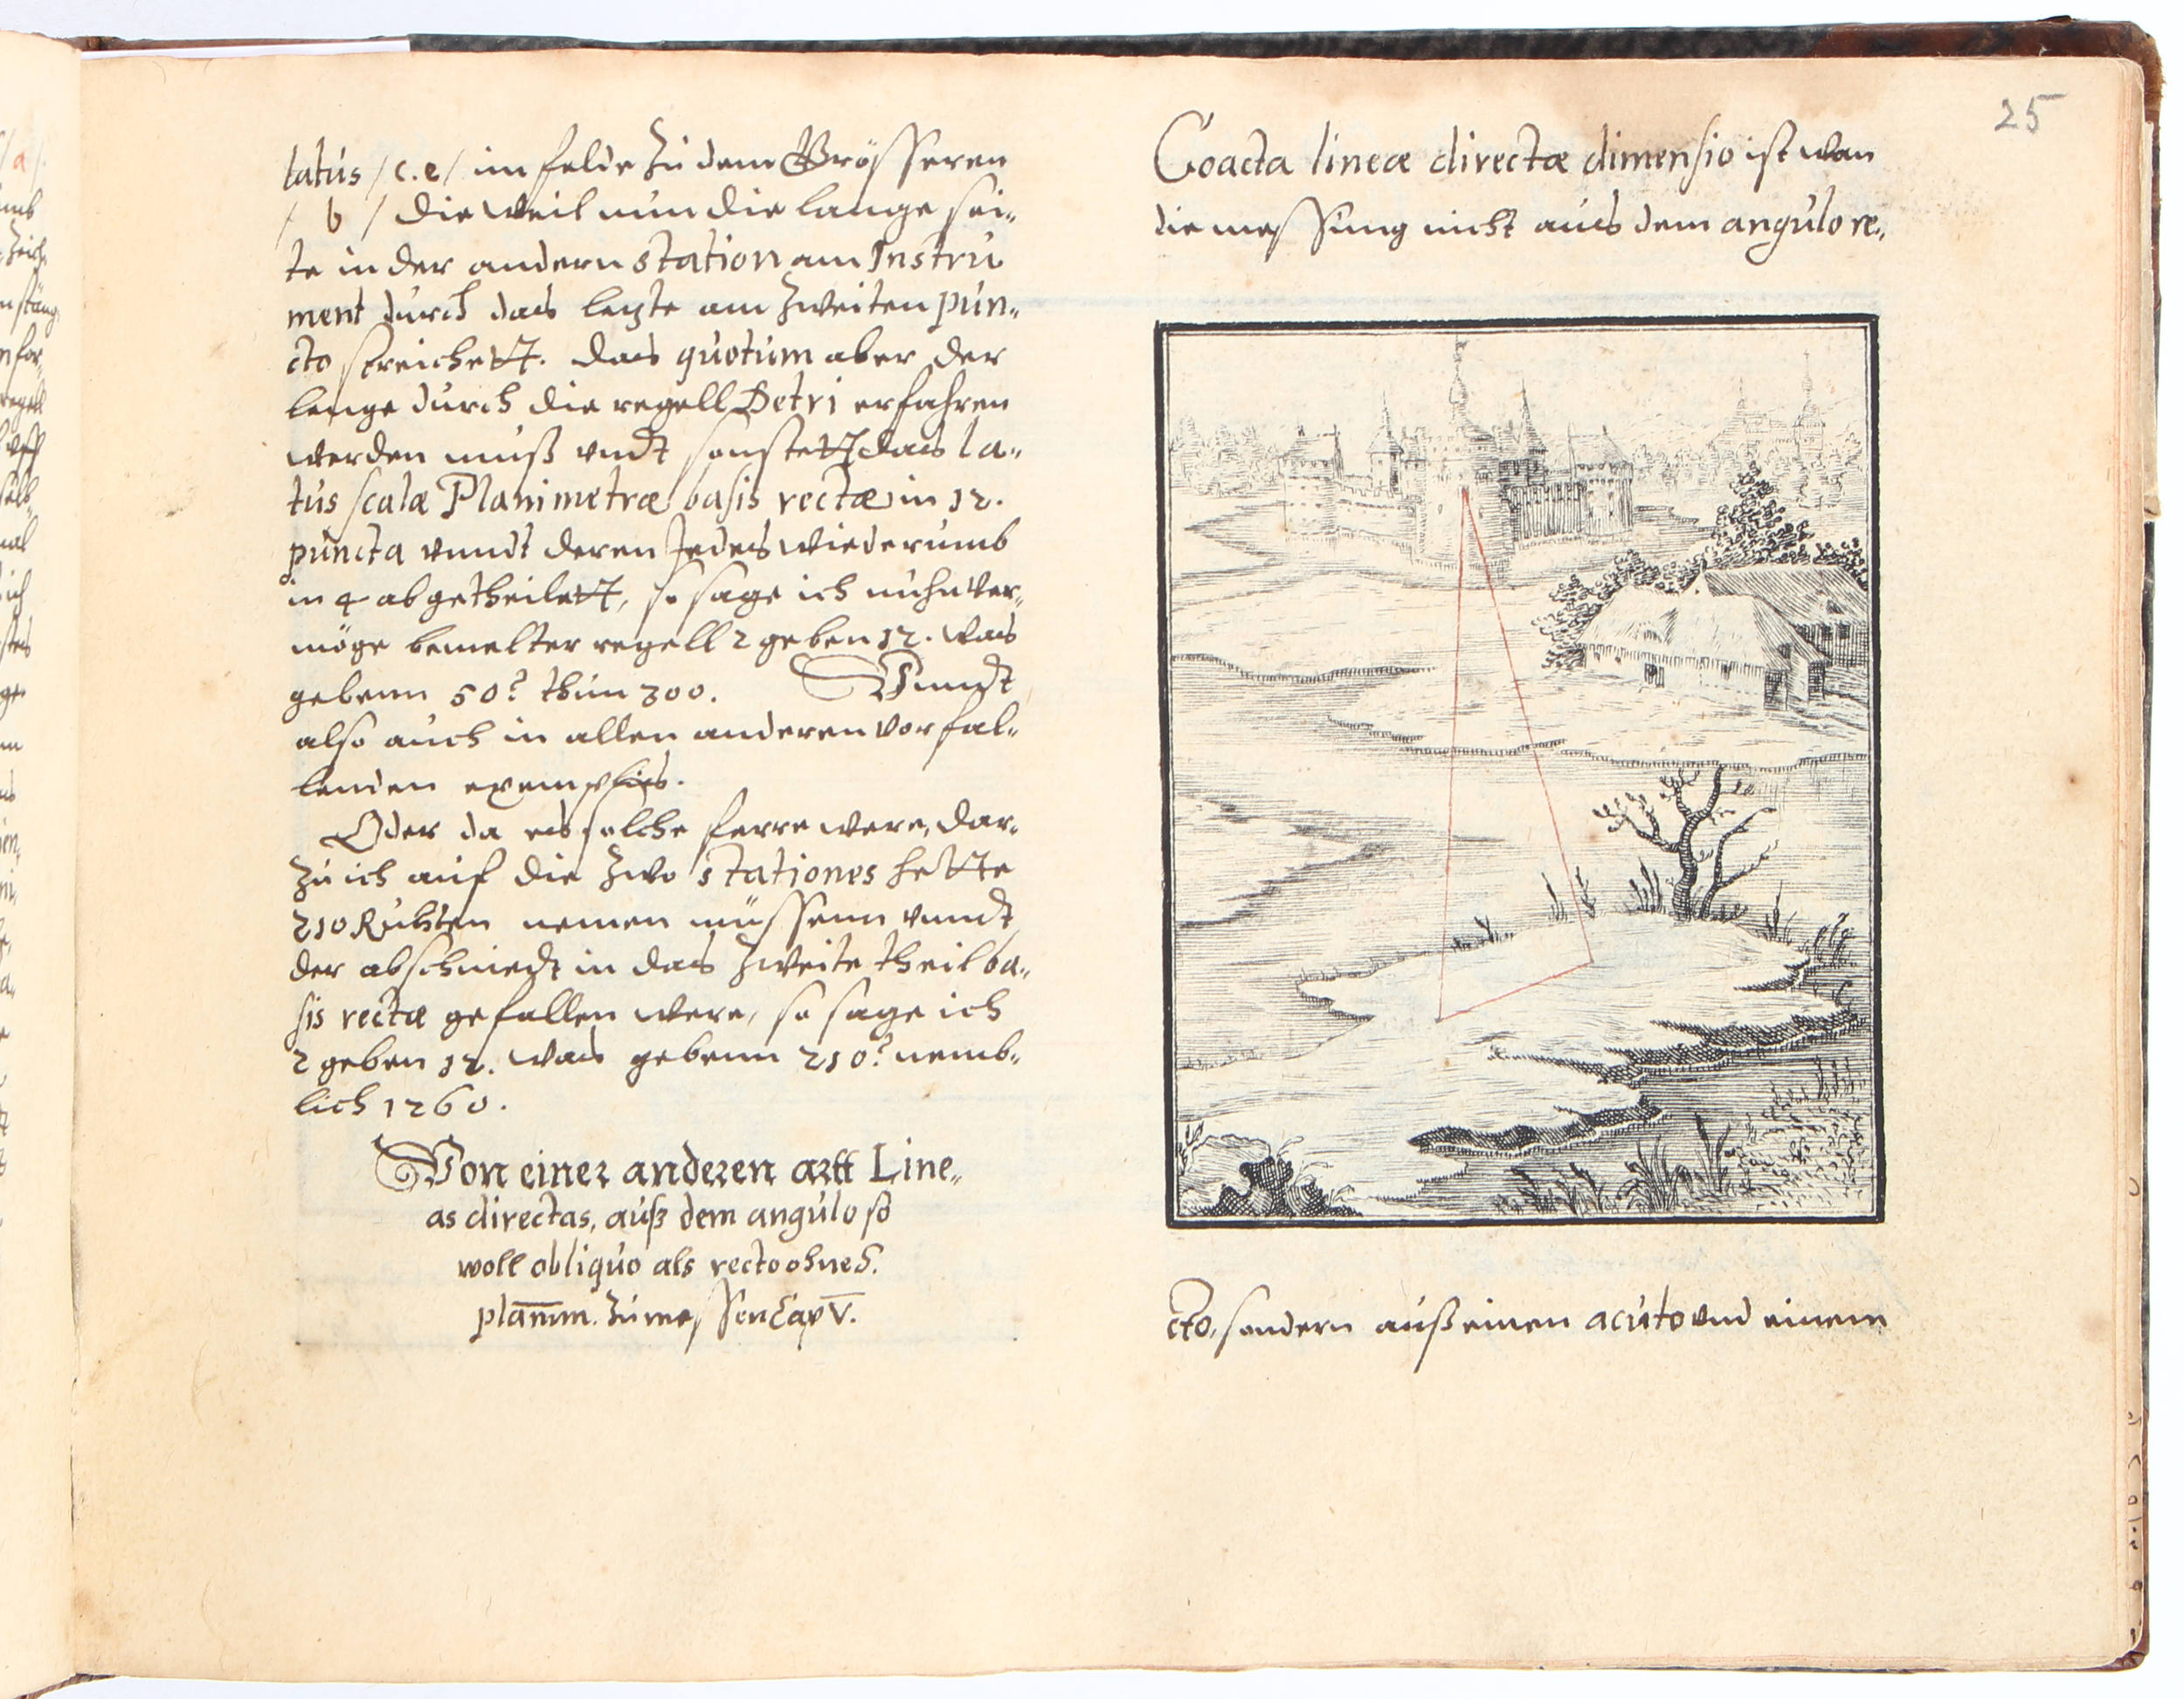 latus / c.e / im felde zu dem Grösseren
/ b / die weil nun die lange sei„
te in der andern station am Instru
ment durch das letzte am zweiten pun„
cto streichett. das quotum aber der
lenge durch die regell Detri erfahren
werden muß vndt sonstett das la„
tus scalæ Planimetræ basis rectæ in 12.
puncta vnndt deren Jedes wiederumb
in 4 abgetheilett, so sage ich nuhn ver„
möge bemelter regell 2 geben 12. was
gebenn 50? thun 300. Vnndt
also auch in allen anderen vorfal„
lenden exemplis.
Oder da es solche ferre were, dar„
zu ich auf die zwo stationes hette
210 Ruhten nemen müssenn vnndt
der abschniedt in das zweite theil ba„
sis rectæ gefallen were, so sage ich
2 geben 12. was gebenn 210? nemb„
lich 1260.
Von einer anderen artt Line„
as directas, auß dem angulo so
woll obliquo als recto ohne S.
planim. zu messen Cap V.
25
Coacta lineæ directæ dimensio ist wan
die messung nicht aus dem angulo re„
cto, sondern auß einen acuto vnd einem